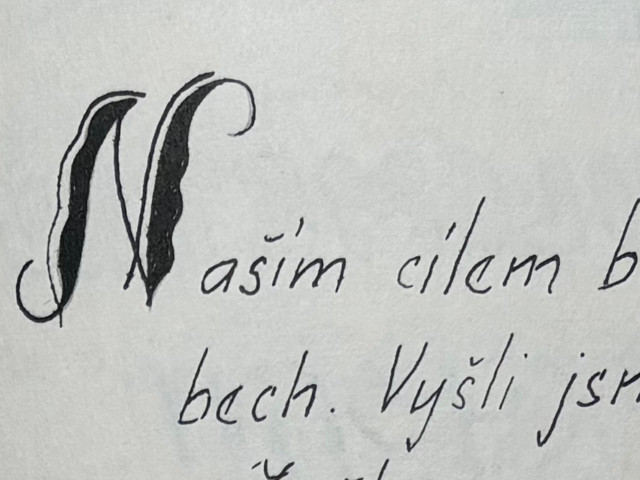 Naším cílem b
bech. Vyšli jsn